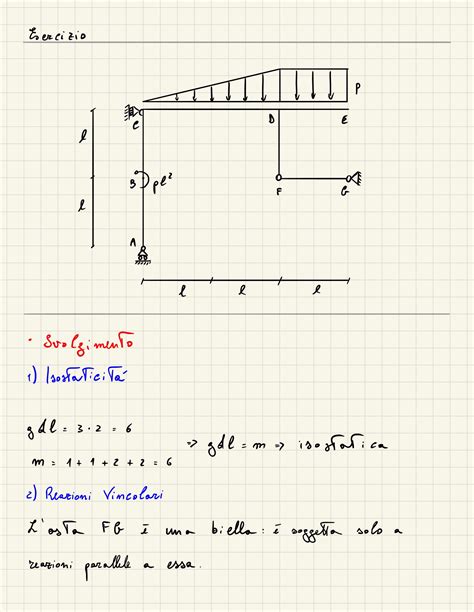 Esercizio
P
C
D
E
l
B
pl²
F
G
l
A
l
l
l
• Svolgimento
1) Isostaticità
gdl = 3 · 2 = 6
=> gdl = m => isostatica
m = 1 + 1 + 2 + 2 = 6
2) Reazioni Vincolari
L'asta FG è una biella: è soggetta solo a
reazioni parallele a essa.